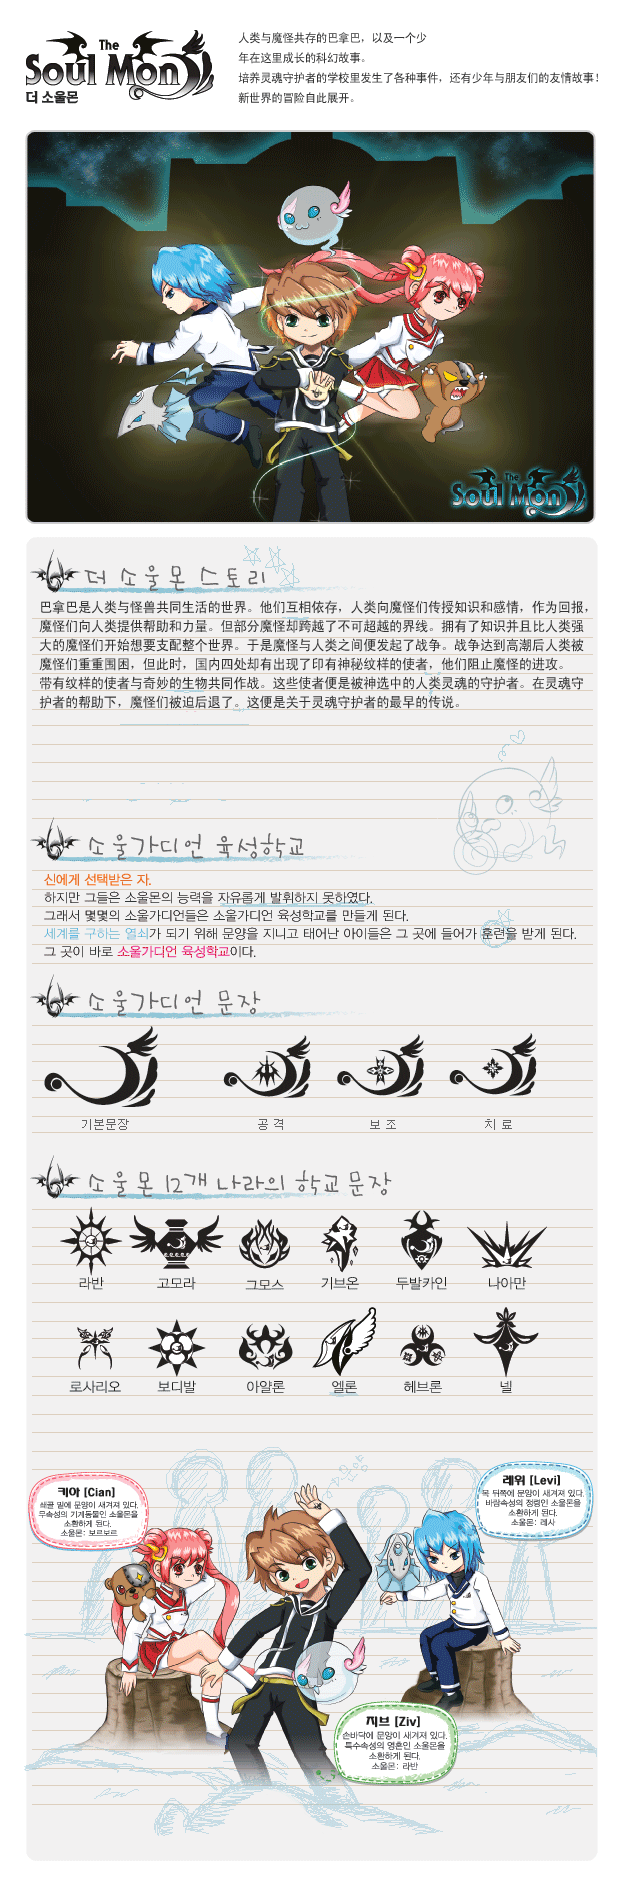 The
Soul Mon
더 소울몬
人类与魔怪共存的巴拿巴，以及一个少
年在这里成长的科幻故事。
培养灵魂守护者的学校里发生了各种事件，还有少年与朋友们的友情故事！
新世界的冒险自此展开。
The
Soul Mon
더 소울몬 스토리
巴拿巴是人类与怪兽共同生活的世界。他们互相依存，人类向魔怪们传授知识和感情，作为回报，
魔怪们向人类提供帮助和力量。但部分魔怪却跨越了不可超越的界线。拥有了知识并且比人类强
大的魔怪们开始想要支配整个世界。于是魔怪与人类之间便发起了战争。战争达到高潮后人类被
魔怪们重重围困，但此时，国内四处却有出现了印有神秘纹样的使者，他们阻止魔怪的进攻。
带有纹样的使者与奇妙的生物共同作战。这些使者便是被神选中的人类灵魂的守护者。在灵魂守
护者的帮助下，魔怪们被迫后退了。这便是关于灵魂守护者的最早的传说。
소울가디언 육성학교
신에게 선택받은 자.
하지만 그들은 소울몬의 능력을 자유롭게 발휘하지 못하였다.
그래서 몇몇의 소울가디언들은 소울가디언 육성학교를 만들게 된다.
세계를 구하는 열쇠가 되기 위해 문양을 지니고 태어난 아이들은 그 곳에 들어가 훈련을 받게 된다.
그 곳이 바로 소울가디언 육성학교이다.
소울가디언 문장
기본문장 공 격 보 조 치 료
소울몬 12개 나라의 학교문장
라반 고모라 그모스 기브온 두발카인 나아만
로사리오 보디발 아얄론 엘론 헤브론 넬
레위 [Levi]
목 뒤쪽에 문양이 새겨져 있다.
바람속성의 정령인 소울몬을
소환하게 된다.
소울몬: 레사
키아 [Cian]
쇄골 밑에 문양이 새겨져 있다.
무속성의 기계동물인 소울몬을
소환하게 된다.
소울몬: 보르보르
지브 [Ziv]
손바닥에 문양이 새겨져 있다.
특수속성의 영혼인 소울몬을
소환하게 된다.
소울몬: 라반